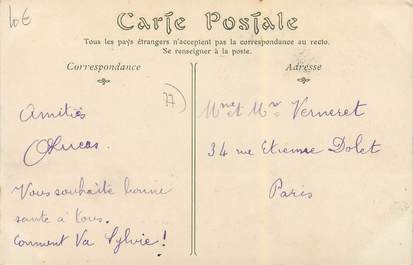 10€
Carte Postale
Tous les pays étrangers n'acceptent pas la correspondance au recto.
Se renseigner à la poste.
Correspondance
Adresse
77
Amitiés
Vous souhaite bonne
sante à tous.
comment Va Sylvie!
Mme et Mr Verneret
34 rue Etienne Dolet
Paris